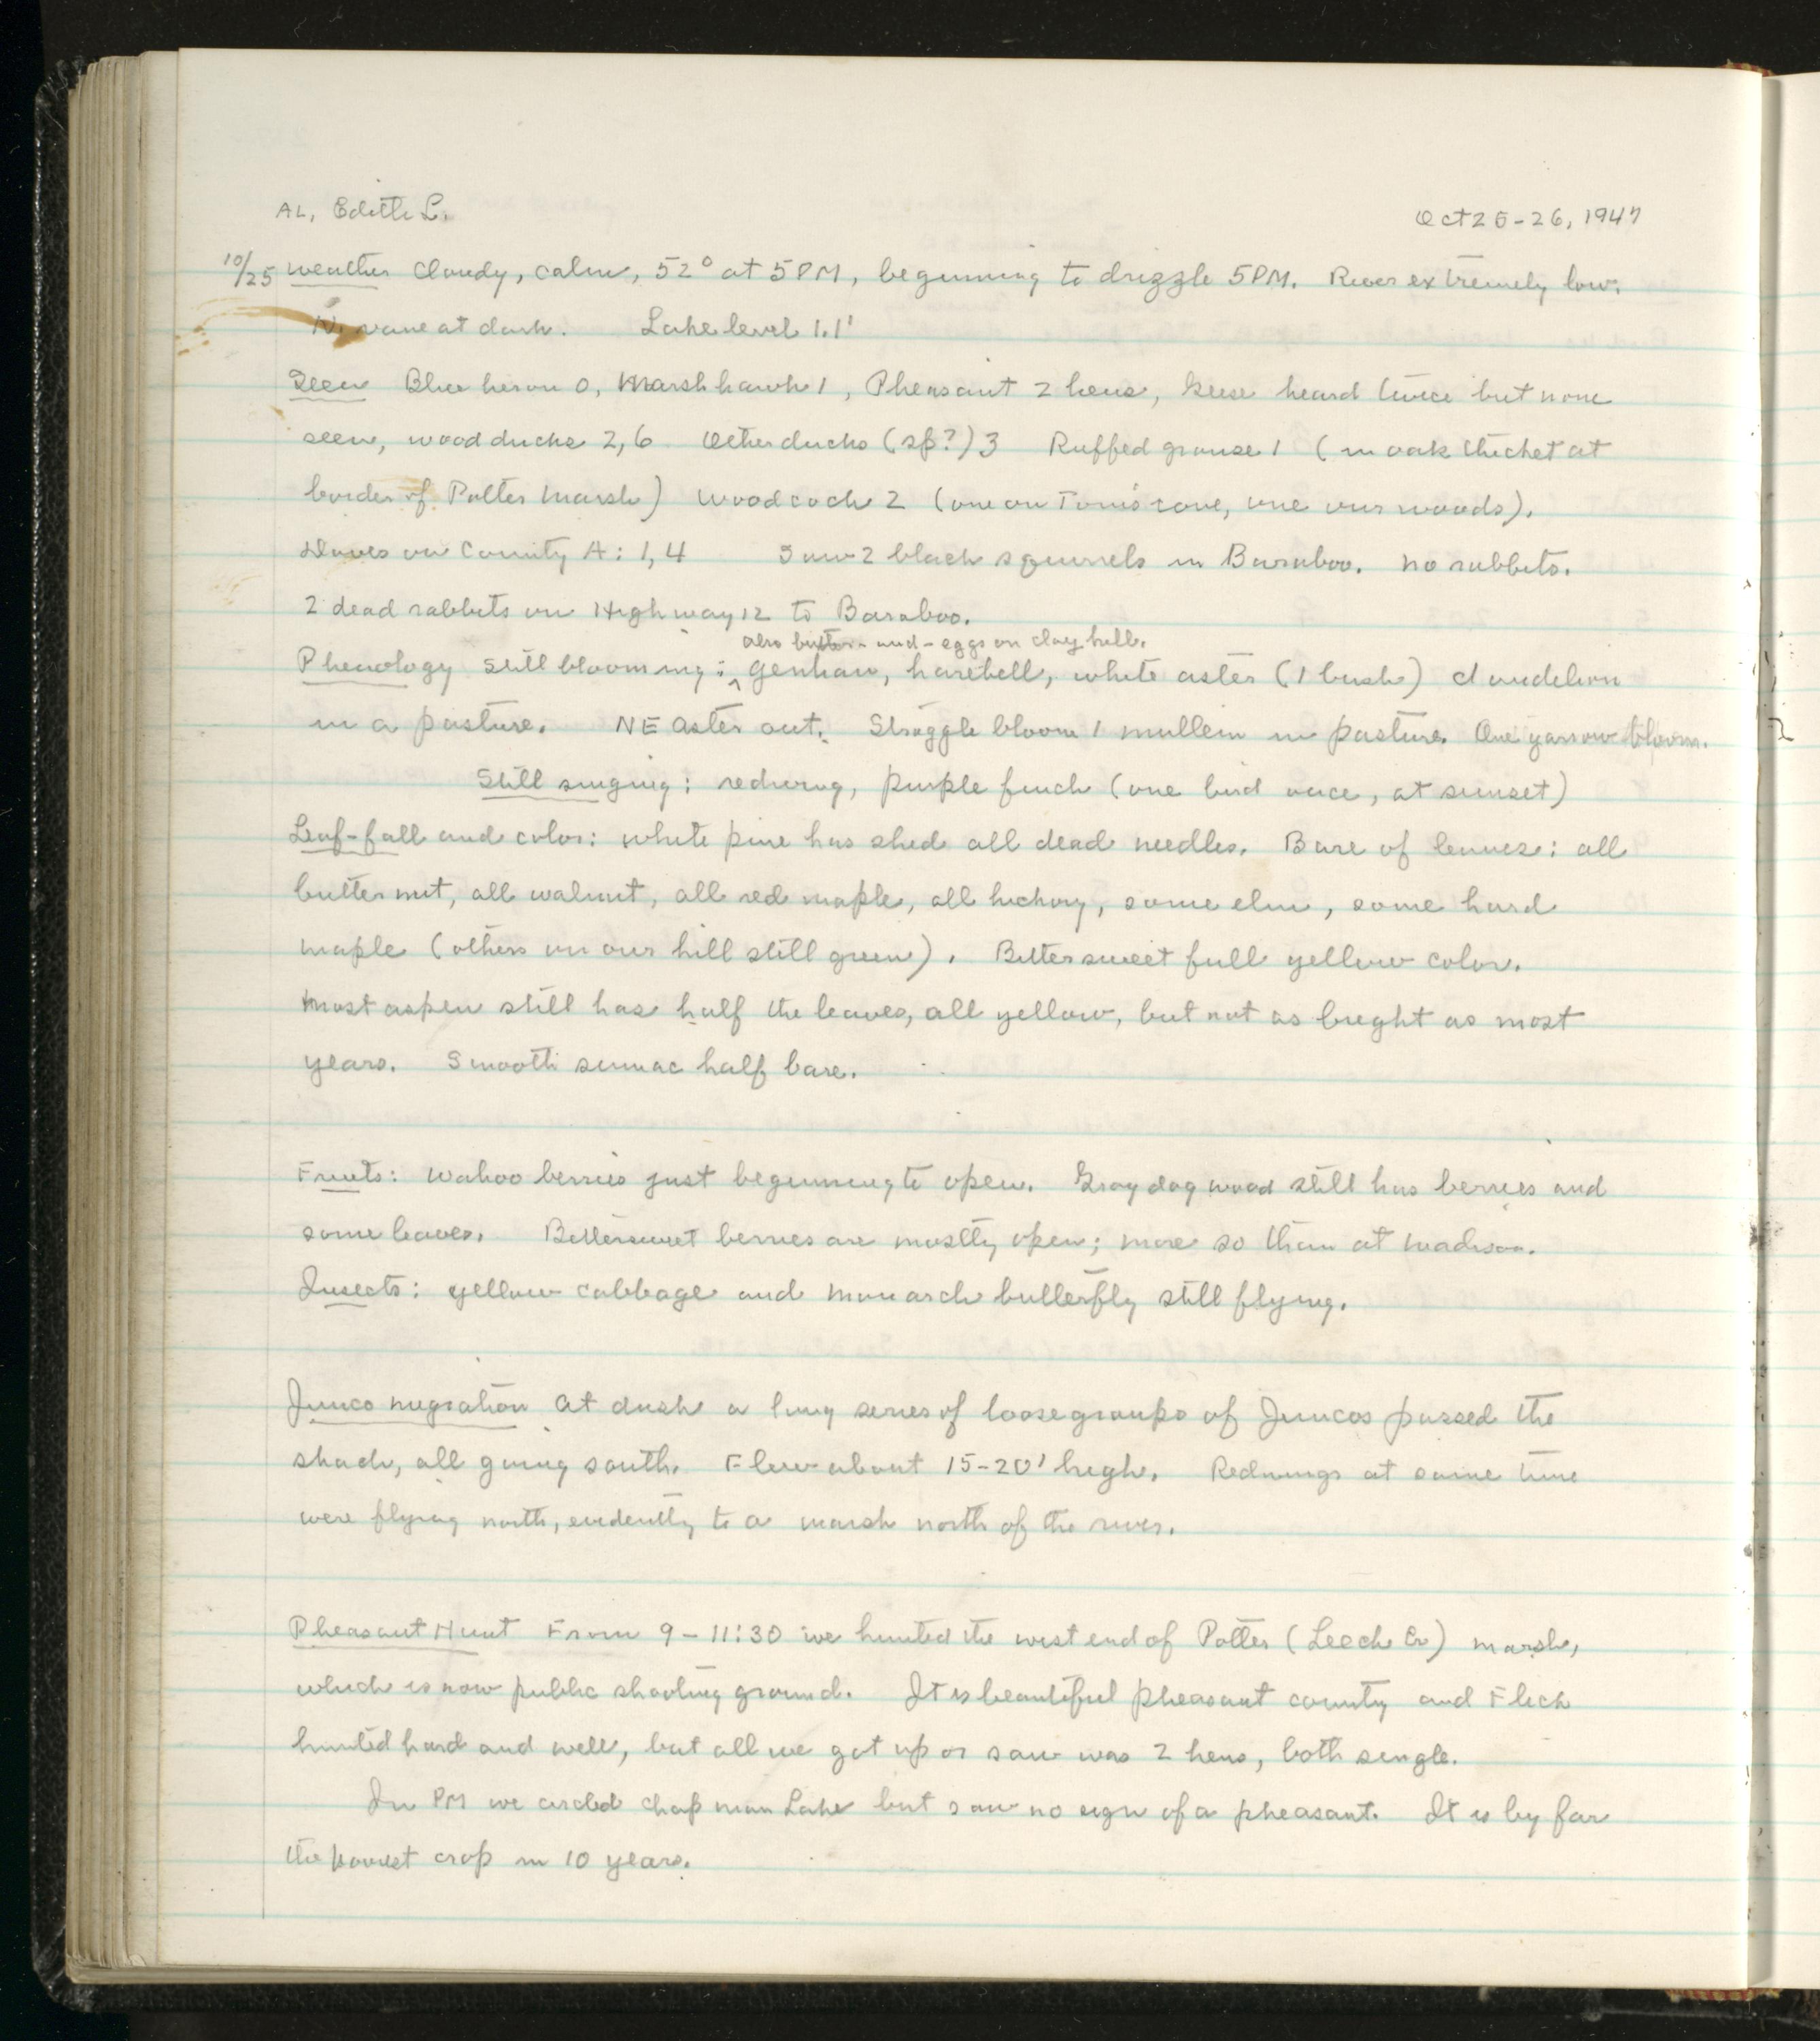 AL, Edith L.
Oct 25-26, 1947
10/25 Weather Cloudy, calm, 52° at 5PM, beginning to drizzle 5PM. River extremely low.
N. vane at dark. Lake level 1.1'
Seen Blue heron 0, Marsh hawk 1, Pheasant 2 hens, Geese heard twice but none
seen, wood ducks 2,6 Other ducks (sp?) 3 Ruffed grouse 1 (in oak thicket at
border of Potter Marsh) Woodcock 2 (one on Tom's cove, one our woods).
Doves on County A: 1,4 Saw 2 black squirrels in Baraboo. no rabbits.
2 dead rabbits on Highway 12 to Baraboo.
also butter-and-eggs on clay hill.
Phenology still blooming: gentian, harebell, white aster (1 bush) dandelion
in a pasture. NE Aster out. Straggle bloom 1 mullein in pasture. One yarrow bloom.
Still singing: redwing, purple finch (one bird once, at sunset)
Leaf-fall and color: white pine has shed all dead needles. Bare of leaves: all
butternut, all walnut, all red maple, all hickory, some elm, some hard
maple (others on our hill still green). Bittersweet full yellow color.
Most aspen still has half the leaves, all yellow, but not as bright as most
years. Smooth sumac half bare.
Fruits: Wahoo berries just beginning to open. Gray dogwood still has berries and
some leaves. Bittersweet berries are mostly open; more so than at Madison.
Insects: yellow cabbage and monarch butterfly still flying.
Junco migration At dusk a long series of loose groups of Juncos passed the
shack, all going south. Flew about 15-20' high. Redwings at same time
were flying north, evidently to a marsh north of the river.
Pheasant Hunt From 9-11:30 we hunted the west end of Potter (Leech Cr) marsh,
which is now public shooting ground. It is beautiful pheasant county and Flick
hunted hard and well, but all we got up or saw was 2 hens, both single.
In PM we circled Chapman Lake but saw no sign of a pheasant. It is by far
the poorest crop in 10 years.